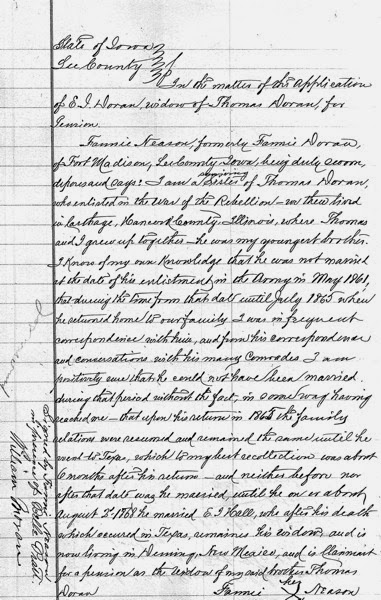 State of Iowa
Lee County
In the matter of the Application
of E. J. Doran, widow of Thomas Doran, for
Pension.
Fannie Neason, formerly Fannie Doran,
of Fort Madison, Lee County Iowa, being duly sworn,
deposes and says: I am a surviving sister of Thomas Doran,
who enlisted in the War of the Rebellion – we then lived
in Carthage, Hancock County, Illinois, where Thomas
and I grew up together – he was my youngest brother.
I know of my own knowledge that he was not married
at the date of his enlistment in the Army in May 1861,
that during the time from that date until July 1865 when
he returned home to our family I was in frequent
correspondence with him, and from his correspondence
and conversations with his many Comrades I am
positively sure that he could not have been married
during that period without the fact, in some way having
reached me – that upon his return in 1865 the family
relations were resumed and remained the same until he
went to Texas, which to my best recollection was about
6 months after his return – and neither before nor
after that date was he married, until he on or about
August 2d 1868 he married E J Hall, who after his death
which occured in Texas, remaines his widow, and is
now living in Deming, New Mexico, and is Claimant
for a pension as the widow of my said brother Thomas
Doran
Fannie her Neason
Signed by Fannie Neason
in presence of Belle Pratt
William Moran